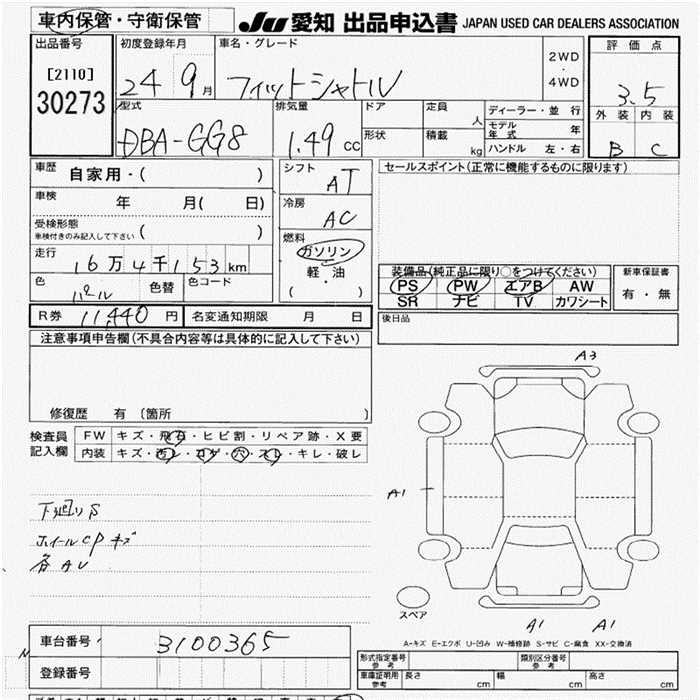 車内保管・守衛保管
JU 愛知 出品申込書 JAPAN USED CAR DEALERS ASSOCIATION
出品番号 初度登録年月 車名・グレード 評価点
[2110]
30273
24 9月 フィットシャトル
2WD
・
4WD
3.5
型式 排気量 ドア 定員 人 ディーラー・並行 外装 内装
DBA-GG8 1.49 cc
モデル年式 年
形状 積載 kg ハンドル 左・右
B C
車歴 自家用・( ) シフト AT セールスポイント(正常に機能するものに限ります)
車検 年 月( 日) 冷房 AC
受検形態
車検付きのみ記入して下さい ( )
燃料
ガソリン
軽・油
( ・ )
走行 16万4千153km
装備品(純正品に限り○をつけてください) 新車保証書
PS PW エアB AW 有・無
SR ナビ TV カワシート
色 パール 色替 色コード
R券 11,440 円 名変通知期限 月 日 後日品
注意事項申告欄(不具合内容等は具体的に記入して下さい)
修復歴 有 〔箇所 〕
検査員記入欄
FW キズ・飛石・ヒビ割・リペア跡・X要
内装 キズ・汚レ・コゲ・穴・スレ・キレ・破レ
A3
A1
下廻りS
ホイールCPキズ
各AU
スペア
A1 A1
A-キズ E-エクボ U-凹み W-補修跡 S-サビ C-腐食 XX-交換済
車台番号 3100365
登録番号
形式指定番号 参考 類別区分番号 参考
車庫証明用 参考 長さ cm 幅 cm 高さ cm